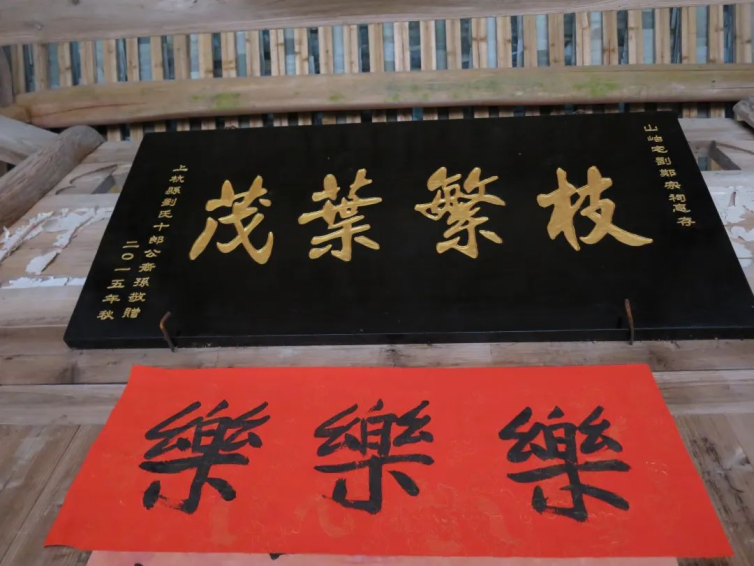 山岫宅劉鄭宗祠惠存
枝繁葉茂
上杭縣劉氏十郎公裔孫敬贈
二〇一五年秋
樂樂樂